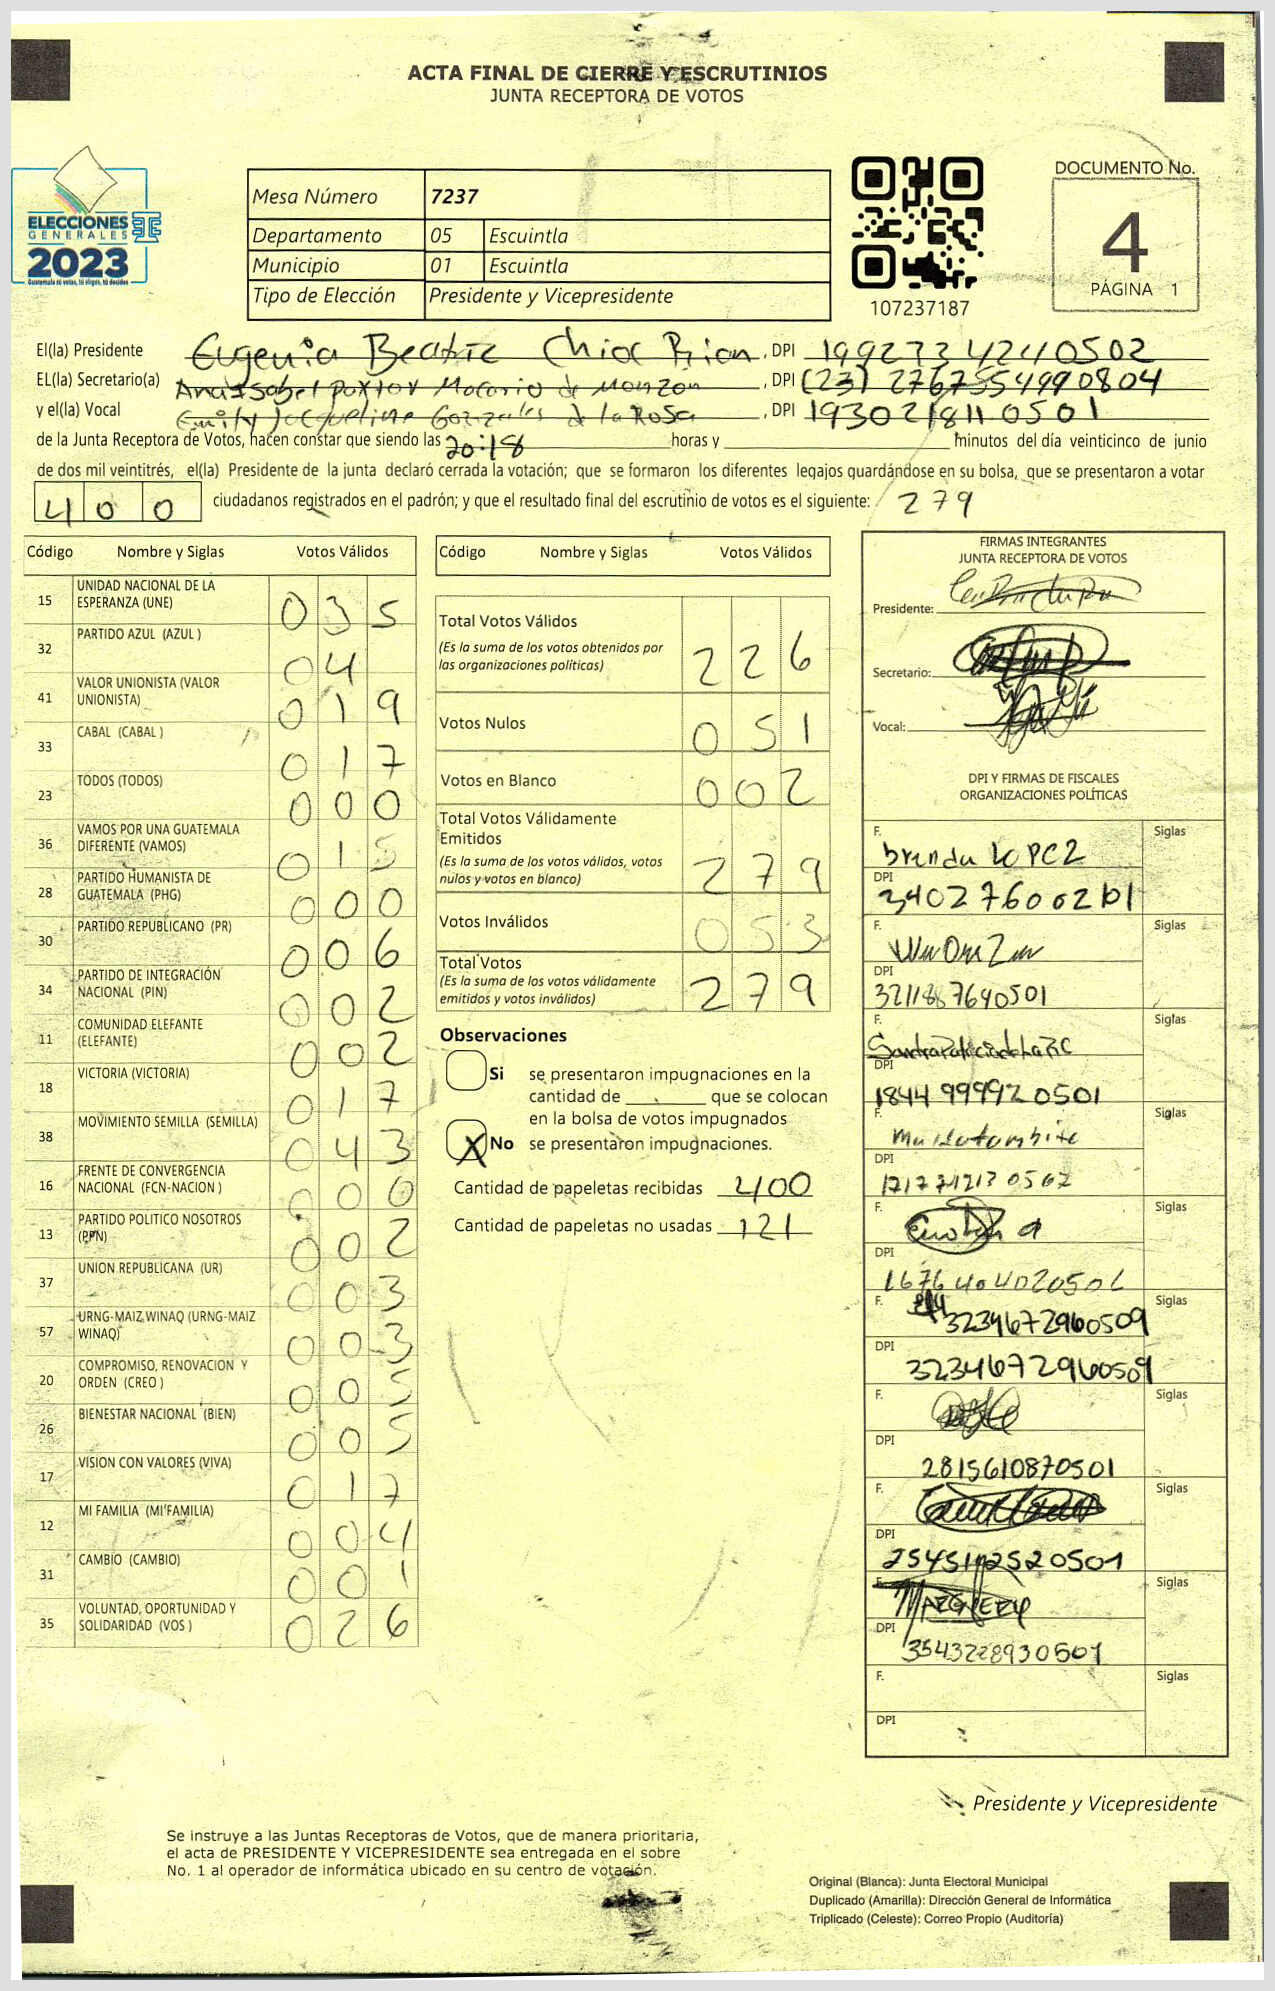 ACTA FINAL DE CIERRE Y ESCRUTINIOS
JUNTA RECEPTORA DE VOTOS
ELECCIONES
GENERALES
2023
Guatemala tú votas, tú eliges, tú decides
Mesa Número 7237
Departamento 05 Escuintla
Municipio 01 Escuintla
Tipo de Elección Presidente y Vicepresidente
107237187
DOCUMENTO No.
4
PÁGINA 1
El(la) Presidente Eugenia Beatriz , DPI 1992734240502
EL(la) Secretario(a) Ana Isabel Paxtor Macario de Monzon , DPI (23) 2767554990804
y el(la) Vocal Emily Jacqueline Gonzales de la Rosa , DPI 1930218110501
de la Junta Receptora de Votos, hacen constar que siendo las 20:18 horas y minutos del día veinticinco de junio
de dos mil veintitrés, el(la) Presidente de la junta declaró cerrada la votación; que se formaron los diferentes legajos guardándose en su bolsa, que se presentaron a votar
400 ciudadanos registrados en el padrón; y que el resultado final del escrutinio de votos es el siguiente: 279
Código Nombre y Siglas Votos Válidos
15 UNIDAD NACIONAL DE LA
ESPERANZA (UNE) 035
32 PARTIDO AZUL (AZUL ) 04
41 VALOR UNIONISTA (VALOR
UNIONISTA) 019
33 CABAL (CABAL ) 017
23 TODOS (TODOS) 000
36 VAMOS POR UNA GUATEMALA
DIFERENTE (VAMOS) 015
28 PARTIDO HUMANISTA DE
GUATEMALA (PHG) 000
30 PARTIDO REPUBLICANO (PR) 006
34 PARTIDO DE INTEGRACIÓN
NACIONAL (PIN) 002
11 COMUNIDAD ELEFANTE
(ELEFANTE) 002
18 VICTORIA (VICTORIA) 017
38 MOVIMIENTO SEMILLA (SEMILLA) 043
16 FRENTE DE CONVERGENCIA
NACIONAL (FCN-NACION ) 000
13 PARTIDO POLITICO NOSOTROS
(PPN) 002
37 UNION REPUBLICANA (UR) 003
57 URNG-MAIZ WINAQ (URNG-MAIZ
WINAQ) 003
20 COMPROMISO, RENOVACION Y
ORDEN (CREO ) 005
26 BIENESTAR NACIONAL (BIEN) 005
17 VISION CON VALORES (VIVA) 017
12 MI FAMILIA (MI FAMILIA) 004
31 CAMBIO (CAMBIO) 001
35 VOLUNTAD, OPORTUNIDAD Y
SOLIDARIDAD (VOS ) 026
Código Nombre y Siglas Votos Válidos
Total Votos Válidos
(Es la suma de los votos obtenidos por
las organizaciones políticas) 226
Votos Nulos 051
Votos en Blanco 002
Total Votos Válidamente
Emitidos
(Es la suma de los votos válidos, votos
nulos y votos en blanco) 279
Votos Inválidos 053
Total Votos
(Es la suma de los votos válidamente
emitidos y votos inválidos) 279
Observaciones
Si se presentaron impugnaciones en la
cantidad de que se colocan
en la bolsa de votos impugnados
X No se presentaron impugnaciones.
Cantidad de papeletas recibidas 400
Cantidad de papeletas no usadas 121
FIRMAS INTEGRANTES
JUNTA RECEPTORA DE VOTOS
Presidente:
Secretario:
Vocal:
DPI Y FIRMAS DE FISCALES
ORGANIZACIONES POLÍTICAS
F. Siglas
DPI
F. Siglas
DPI
F. Siglas
DPI 1844999920501
F. Siglas
DPI
F. Siglas
DPI
F. 3234672960509 Siglas
DPI 3234672960509
F. Siglas
DPI 2815610870501
F. Siglas
DPI
F. Siglas
DPI 3543228930501
F. Siglas
DPI
Presidente y Vicepresidente
Se instruye a las Juntas Receptoras de Votos, que de manera prioritaria,
el acta de PRESIDENTE Y VICEPRESIDENTE sea entregada en el sobre
No. 1 al operador de informática ubicado en su centro de votación.
Original (Blanca): Junta Electoral Municipal
Duplicado (Amarilla): Dirección General de Informática
Triplicado (Celeste): Correo Propio (Auditoría)